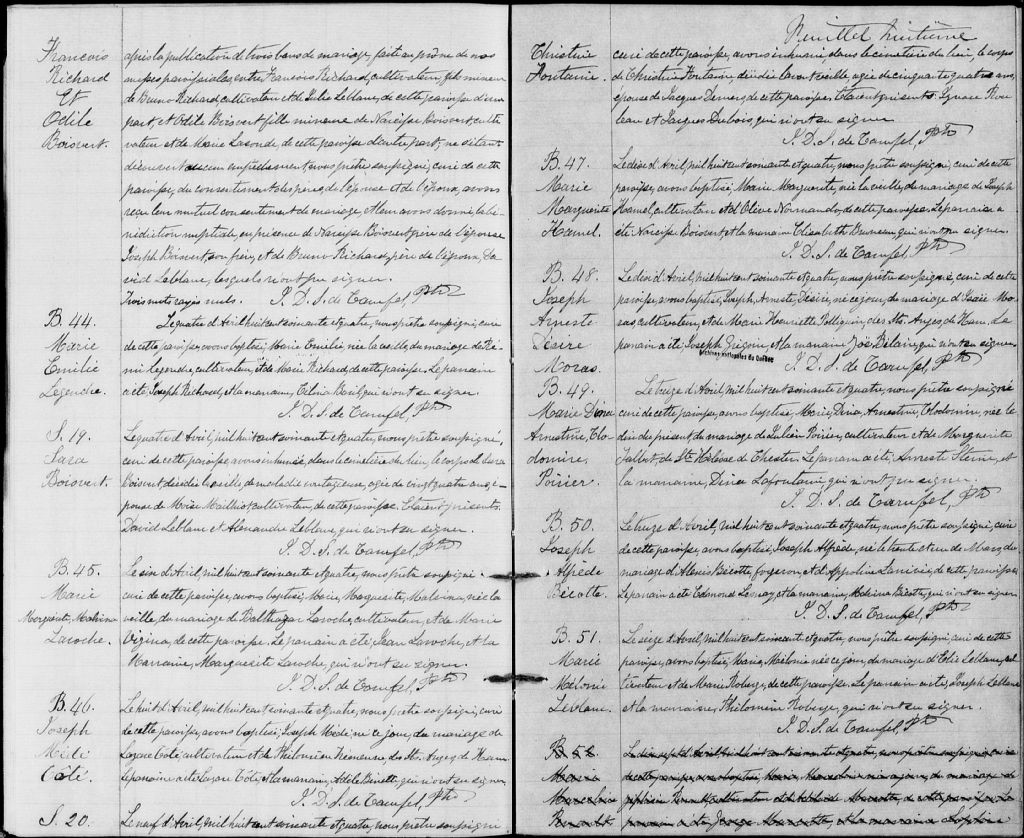 François
Richard
Et
Odile
Boisvert.
après la publication de trois bans de mariage, faite au prône de nos
messes paroissiales, entre François Richard, cultivateur, fils mineur
de Bruno Richard, cultivateur et de Julie Leblanc, de cette paroisse d'une
part, et Odile Boisvert fille mineure de Narcisse Boisvert, culti-
vateur et de Marie Lasonde, de cette paroisse d'autre part, ne s'étant
découvert aucun empêchement, nous prêtre soussigné, curé de cette
paroisse, du consentement des pères de l'épouse et de l'époux, avons
reçu leur mutuel consentement de mariage, et leur avons donné la bé-
nédiction nuptiale, en présence de Narcisse Boisvert père de l'épouse
Joseph Boisvert son frère, et de Bruno Richard, père de l'époux, Da-
vid Leblanc, lesquels n'ont pu signer.
Trois mots rayés nuls. J. D. S. de Carufel, Ptre
B. 44.
Marie
Emilie
Legendre.
Le quatre d'Avril, huit cent soixante et quatre, nous prêtre soussigné, curé
de cette paroisse, avons baptisé, Marie Emelie, née la veille, du mariage de Ré-
mi Legendre, cultivateur, et de Marie Richard, de cette paroisse. Le parrain
a été Joseph Richard, et la marraine, qui n'ont su signer.
J. D. S. de Carufel, Ptre
S. 19.
Sara
Boisvert.
Le quatre d'Avril, mil huit cent soixante et quatre, nous prêtre soussigné,
curé de cette paroisse, avons inhumé, dans le cimetière du lieu, le corps de Sara
Boisvert décédée la veille de maladie contagieuse, agée de vingt quatre ans, é-
pouse de Moïse Mailhot cultivateur, de cette paroisse. Étaient présents
David Leblanc et Alexandre Leblanc, qui n'ont su signer.
J. D. S. de Carufel, Ptre
B. 45.
Marie
Marguerite, Malvina
Laroche.
Le six d'Avril, mil huit cent soixante et quatre, nous prêtre soussigné
curé de cette paroisse, avons baptisé, Marie, Marguerite, Malvina, née la
veille, du mariage de Balthazar Laroche, cultivateur, et de Marie
de cette paroisse. Le parrain a été, Jean Laroche, et la
Marraine, Marguerite Laroche, qui n'ont su signer.
J. D. S. de Carufel, Ptre
B. 46.
Joseph
Médé
Coté.
Le huit d'Avril, mil huit cent soixante et quatre, nous prêtre soussigné, curé
de cette paroisse, avons baptisé, Joseph Médé, né ce jour, du mariage de
Lazare Coté, cultivateur et de Philomène des Sts. Anges de Ham.
Le parrain a été Lazare Coté, et la marraine, Adéle Binette, qui n'ont su signer.
J. D. S. de Carufel, Ptre
S. 20.
Le neuf d'Avril, mil huit cent soixante et quatre, nous prêtre soussigné
Feuillet huitième
Christine
Fontaine.
curé de cette paroisse, avons inhumé, dans le cimetière du lieu, le corps
de Christine Fontaine décédée l'avant veille, agée de cinquante quatre ans,
épouse de Jacques Demers, de cette paroisse. Étaient présents Ignace Rou-
leau et Jacques Dubois, qui n'ont su signer
J. D. S. de Carufel, Ptre
B. 47.
Marie
Marguerite
Hamel.
Le dix d'Avril, mil huit cent soixante et quatre, nous prêtre soussigné, curé de cette
paroisse, avons baptisé, Marie Marguerite, née la veille, du mariage de Joseph
Hamel, cultivateur et d'Olive Normando, de cette paroisse. Le parrain a
été Narcisse Boisvert, et la marraine Elisabeth Bruneau, qui n'ont pu signer.
J. D. S. de Carufel, Ptre
B. 48.
Joseph
Arneste
Désiré
Moras.
Le dix d'Avril, mil huit cent soixante et quatre, nous prêtre soussigné, curé de cette
paroisse, avons baptisé, Joseph, Arneste, Désiré, né ce jour, du mariage d'Isaïe Mo-
ras cultivateur, et de Marie Henriette Pellequin, des Sts. Anges de Ham. Le
parrain a été, Joseph et la marraine qui n'ont su signer.
Archives nationales du Québec
J. D. S. de Carufel, Ptre
B. 49.
Marie Dina
Arnestine, Clo-
domire,
Poirier.
Le treize d'Avril, mil huit cent soixante et quatre, nous prêtre soussigné
curé de cette paroisse, avons baptisé, Marie, Dina, Arnestine, Clodomire, née le
dix du présent, du mariage de Julien Poirier, cultivateur et de Marguerite
Talbot, de Ste Hélène de Chester. Le parrain a été, Arneste et
la marraine, Dina Lafontaine qui n'ont pu signer.
J. D. S. de Carufel, Ptre
B. 50.
Joseph
Alfrède
Bécotte.
Le treize d'Avril, mil huit cent soixante et quatre, nous prêtre soussigné, curé
de cette paroisse, avons baptisé, Joseph Alfrède, né le trente et un de Mars, du
mariage d'Alexis Bécotte, forgeron, et d'Appoline Larivée, de cette paroisse
Le parrain a été Edmond Lemay, et la marraine, Bécotte, qui n'ont su signer.
J. D. S. de Carufel, Ptre
B. 51.
Marie
Mélonie
Leblanc.
Le seize d'Avril, mil huit cent soixante et quatre, nous prêtre soussigné, curé de cette
paroisse, avons baptisé, Marie, Mélonie née ce jour, du mariage d'Eloïe Leblanc, cul-
tivateur et de Marie Roberge, de cette paroisse. Le parrain a été, Joseph Leblanc
et la marraine, Philomène Roberge, qui n'ont pu signer.
J. D. S. de Carufel, Ptre
B. 52
Marie